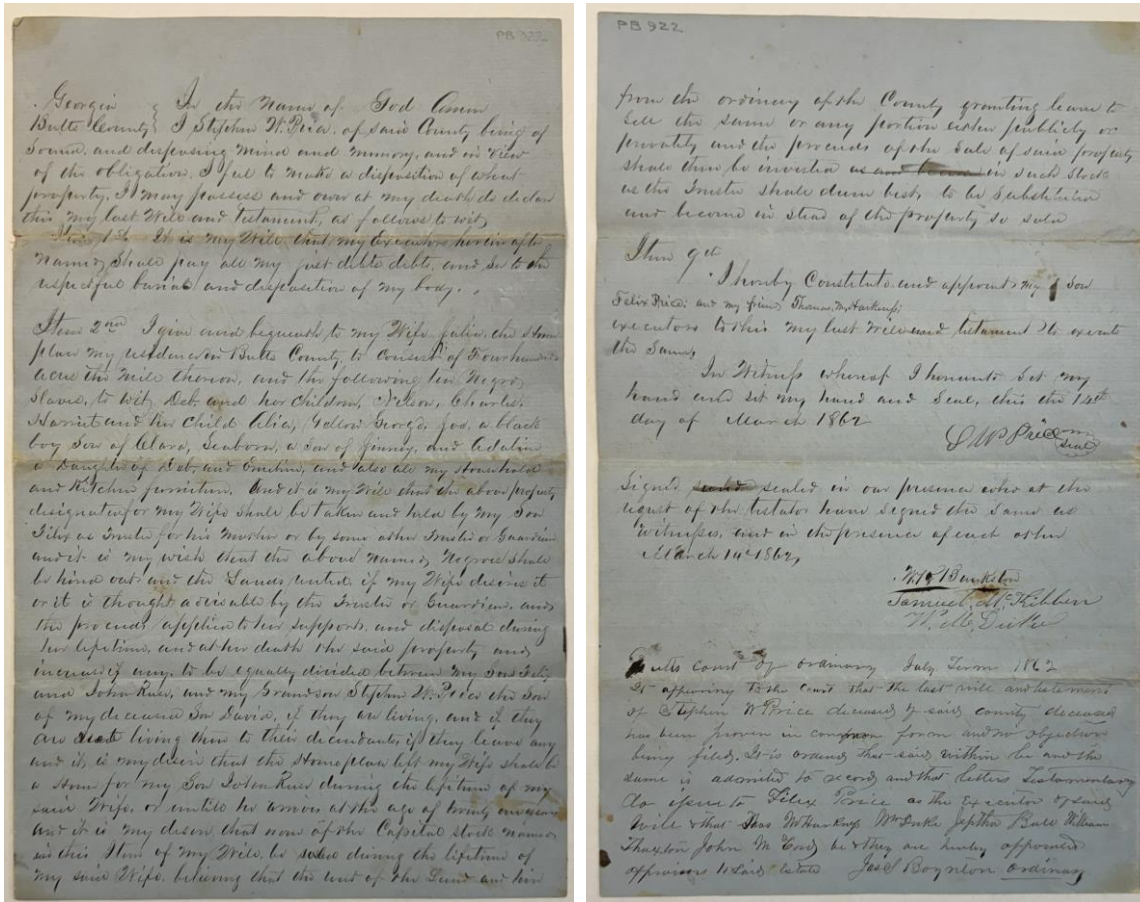 PB 922
Georgia } In the Name of God Amen
Butts County } I Stephen W. Price, of said County being of
sound and disposing mind and memory, and in view
of the obligation, I feel to make a disposition of what
property, I may possess and own at my death do declare
this my last Will and Testament, as follows to wit,
Item 1st It is my Will, that my Executors herein after
named shall pay all my just debts debts, and see to the
respectful burial and disposition of my body.
Item 2nd I give and bequeath to my Wife Julia, the Home
place my residence in Butts County, to consist of Four hundred
acres the Mill thereon, and the following ten Negro
Slaves, to wit, Deb, and her Children, Nelson, Charles,
Harriet and her Child Alia, Yellow George, Joe, a black
boy son of Clara, Seaborn, a son of Jinney, and Adaline
a Daughter of Deb, and Emeline, and also all my Household
and Kitchen furniture. And it is my Will that the above property
designated for my Wife shall be taken and held by my Son
Felix as Trustee for his Mother or by some other Trustee or Guardian
and it is my wish that the above named Negroes shall
be hired out and the Lands rented, if my Wife desires it
or it is thought advisable by the Trustee or Guardian, and
the proceeds applied to her support, and disposal during
her lifetime, and at her death the said property and
increase if any, to be equally divided between my Sons Felix
and John and my Grandson Stephen W. Price the Son
of my deceased Son David, if they are living, and if they
are living then to their decendants, if they leave any
and it is my desire that the Homeplace left my Wife shall be
a Home for my Son John during the lifetime of my
said Wife, or untill he arrives at the age of twenty one years
and it is my desire, that none of the Capital stock named
in this Item of my Will, be during the lifetime of
my said Wife, believing that the rent of the Land and hire
PB 922
from the ordinary of the County granting leave to
sell the same or any portion either publicly or
privately and the proceeds of the sale of said property
shall then be invested in such Stock
as the Trustee shall deem best, to be substituted
and become in stead of the property so sold
Item 9th
I hereby Constitute and appoint my Son
Felix Price, and my friend Thomas M. Harkness,
executors to this my last Will and testament to execute
the same,
In Witness whereof I hereunto set my
hand and set my hand and Seal, this the 14th
day of March 1862
S W Price
Seal
Signed sealed in our presence who at the
request of the testator have signed the same as
Witness, and in the presence of each other
March 14th 1862,
Bankston
Samuel McKibben
W. M. Duke
Butts court of ordinary July Term 1862
It appearing to the court that the last will and testament
of Stephen W Price deceased of said county deceased
has been proven in common form and no objection
being filed, It is ordered that said within be and the
same is admitted to record and that letters Testamentary
do issue to Felix Price as the Executor of said
Will & that Thos M Harkness Wm Duke Jeptha Ball William
Thaxton John M be & they are hereby appointed
appraisers to said estate Josel Boynton ordinary